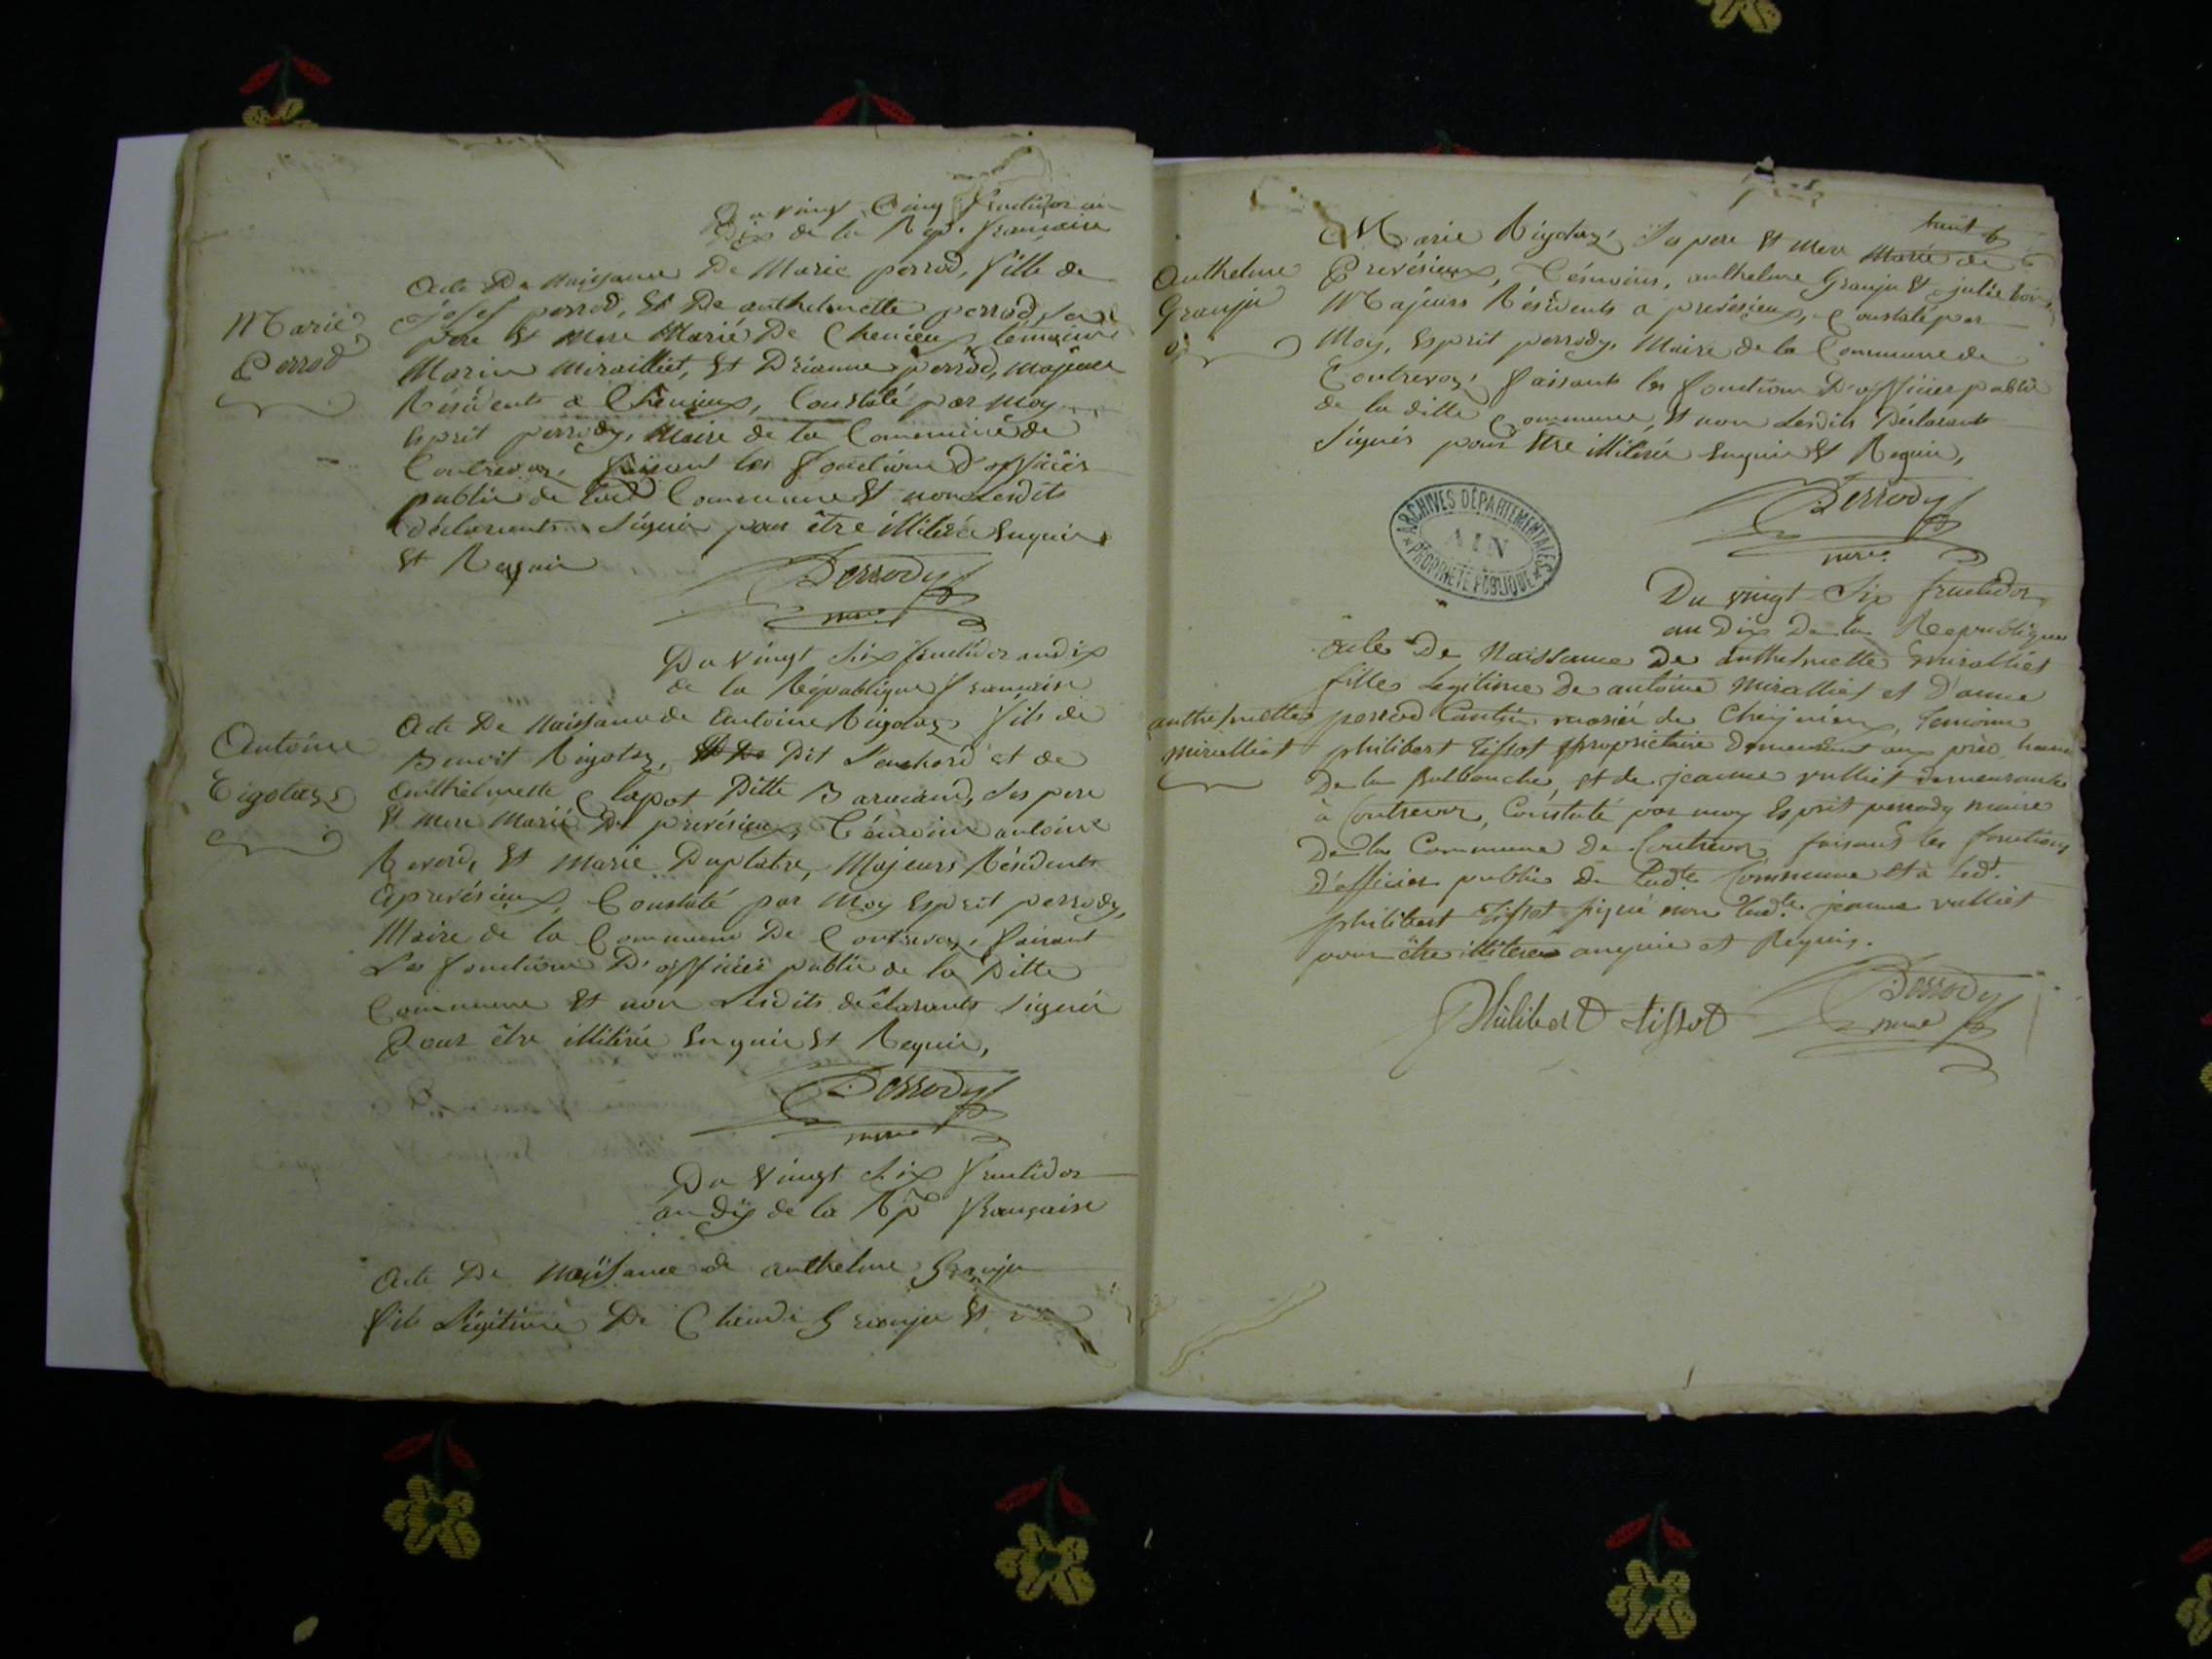 Du vingt Cinq fructidor an
Dix de la Rep. française
Marie
Perrod
Acte De Naissance De Marie perrod, fille de
Josef perrod, Et De anthelmette perrod ses
pere Et Mere Marié De Chenieu, témoins
Marin Mirailliet, Et Drianne perrod, majeurs
Résidents a Chenieux, Constaté par moy
Esprit perrody, Maire de la Commune de
Contrevoz, faisant les fonctions d'officier
public de lad Commune Et non Lesdits
déclarants Signés pour être illitéré Enquis
Et Requis
Perrody
maire
Du Vingt Six fructidor an dix
de la République française
Antoine
Rigotaz
Acte De Naissance de Antoine Rigotaz, fils de
Benoit Rigotaz, Dit et de
Anthelmette Clapot Ditte ses pere
Et mere Marié De prevésieux, Témoins antoine
Revord, Et Marie Duplatre, Majeurs Résidents
a prevésieux, Constaté par Moy Esprit perrody,
Maire de la Commune De Contrevoz, faisant
Les fonctions D'officier public de la Ditte
Commune Et non Lesdits déclarants Signés
Pour être illitéré Enquis Et Requis,
Perrody
maire
Du Vingt Six fructidor
an dix de la Rp française
Acte De Naissance de anthelme Granju
fils Légitime De Claude Granju Et De
huit
Anthelme
Granju
Marie Rigotaz, Ses pere Et Mere Marié de
Prevésieux, Témoins, anthelme Granju Et julie
Majeurs Résidents a prevésieux, Constaté par
Moy, Esprit perrody, Maire de la Commune de
Contrevoz, faisant les fonctions D'officier public
de la ditte Commune, Et non Lesdits Déclarants
Signés pour Etre illitéré Enquis Et Requis,
Perrody
maire
ARCHIVES DÉPARTEMENTALES
AIN
PROPRIÉTÉ PUBLIQUE
Du vingt Six fructidor
an Dix De la Republique
acte De Naissance De anthelmette miralliet
fille Legitime De antoine Miralliet et D'anne
anthelmette
miralliet
perrod Cantin marié de Cheignieu, Temoins
philibert Tissot proprietaire Demeurant au
De la et de jeanne vulliet demeurante
à Contrevoz, Constaté par moy Esprit perrody maire
De la Commune De Contrevoz faisant les fonctions
D'officier public De Ladte Commune et à led.t
philibert Tissot signé non Ladte jeanne vulliet
pour être illiteré enquis et Requis.
Philibert tissot
Perrody
maire